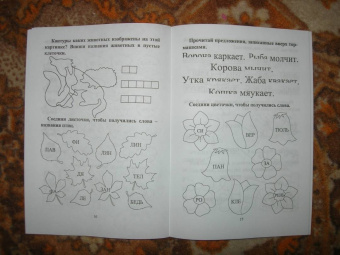 Контуры каких животных изображены на этой
картинке? Впиши названия животных в пустые
клеточки.
Соедини листочки, чтобы получились слова –
названия птиц.
ПАВ
ФИ
ЛИН
ЛИН
ДЯ
ТЕЛ
ЛЕ
БЕДЬ
Прочитай предложения, записанные
Ворона каркает. Рыба молчит.
Корова мычит.
Утка крякает. Жаба квакает.
Кошка мяукает.
Соедини цветочки, чтобы получились слова.
СИ
ВЕР
ТЮЛЬ
ПАН
ЗА
РО
КЛЕ
РО